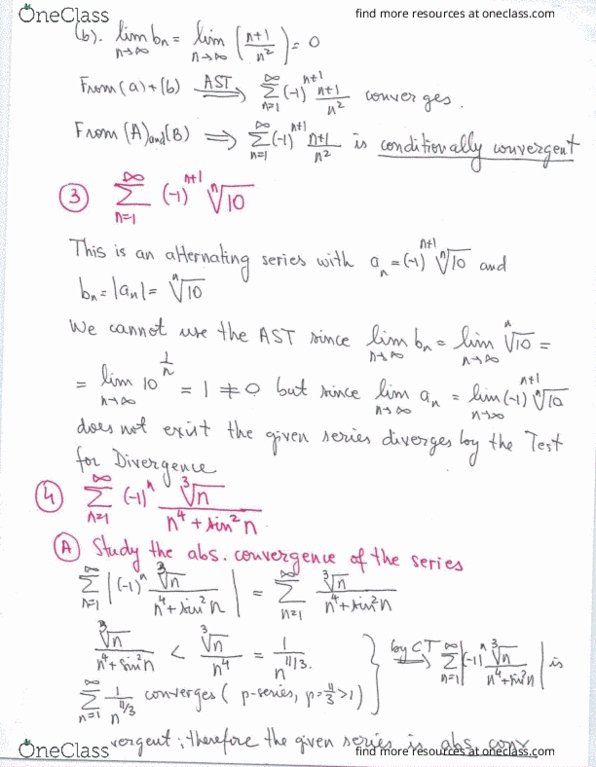 OneClass
find more resources at oneclass.com
(b). lim n→∞ bn = lim n→∞ (n+1/n²) = 0
From (a)+(b) AST ⟹ ∞Σn=1 (-1)^n+1 n+1/n² converges.
From (A) and (B) ⟹ ∞Σn=1 (-1)^n+1 n+1/n² is conditionally convergent
③ ∞Σn=1 (-1)^n+1 ⁿ√10
This is an alternating series with an = (-1)^n+1 ⁿ√10 and
bn = |an| = ⁿ√10
We cannot use the AST since lim n→∞ bn = lim n→∞ ⁿ√10 =
= lim n→∞ 10^1/n = 1 ≠ 0 but since lim n→∞ an = lim n→∞ (-1)^n+1 ⁿ√10
does not exist the given series diverges by the Test
for Divergence
④ ∞Σn=1 (-1)^n ³√n / n⁴ + sin²n
Ⓐ Study the abs. convergence of the series
∞Σn=1 |(-1)^n ³√n / n⁴ + sin²n| = ∞Σn=1 ³√n / n⁴ + sin²n
³√n / n⁴ + sin²n < ³√n / n⁴ = 1 / n^11/3. } by CT ⟹ ∞Σn=1 |(-1)^n ³√n / n⁴ + sin²n| is
∞Σn=1 1 / n^11/3 converges ( p-series, p = 11/3 > 1 )
vergent; therefore the given series is abs. conv
OneClass
find more resources at oneclass.com